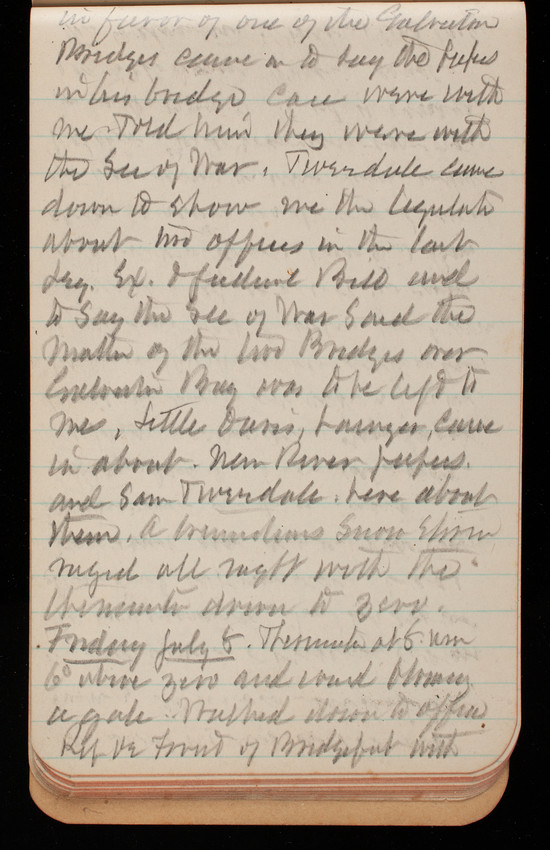 in favor of one of the Galveston
Bridges came in to say the papers
in his bridge case were with
me. Told him they were with
the Sec of War. Tweedale came
down to show me the legislate
about two offices in the last
Leg. Ex. & Judicial Bill and
to say the Sec of War said the
matter of the two Bridges over
Galveston Bay was to be left to
me. Little Davis, Lawyer, came
in about New River papers
and Sam Tweedale. here about
them. A tremendous Snow Storm
raged all night with the
thermometer down to zero.
Friday 8. Thermometer at 8 am
6° above zero and wind blowing
a gale. Walked down to office.
Rep De Forest of Bridgeport with